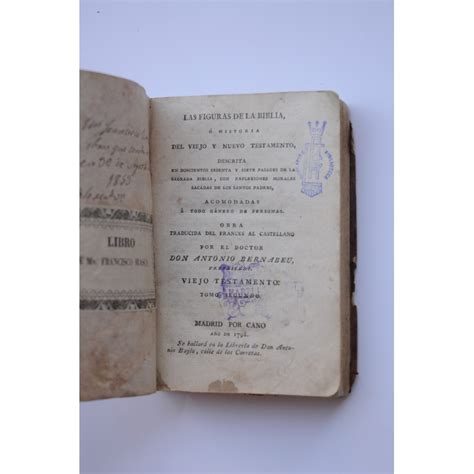 1853
LIBRO
DE Mn. FRANCISCO
LAS FIGURAS DE LA BIBLIA,
Ó HISTORIA
DEL VIEJO Y NUEVO TESTAMENTO,
DESCRITA
EN DOSCIENTOS SESENTA Y SIETE PASAGES DE LA
SAGRADA BIBLIA, CON REFLEXIONES MORALES
SACADAS DE LOS SANTOS PADRES,
ACOMODADAS
Á TODO GÉNERO DE PERSONAS.
OBRA
TRADUCIDA DEL FRANCES AL CASTELLANO
POR EL DOCTOR
DON ANTONIO BERNABEU,
PRESBITERO.
VIEJO TESTAMENTO
TOMO SEGUNDO.
MADRID POR CANO
AÑO DE
Se hallará en la Librería de Don Anto-
nio Baylo, calle de las Carretas.